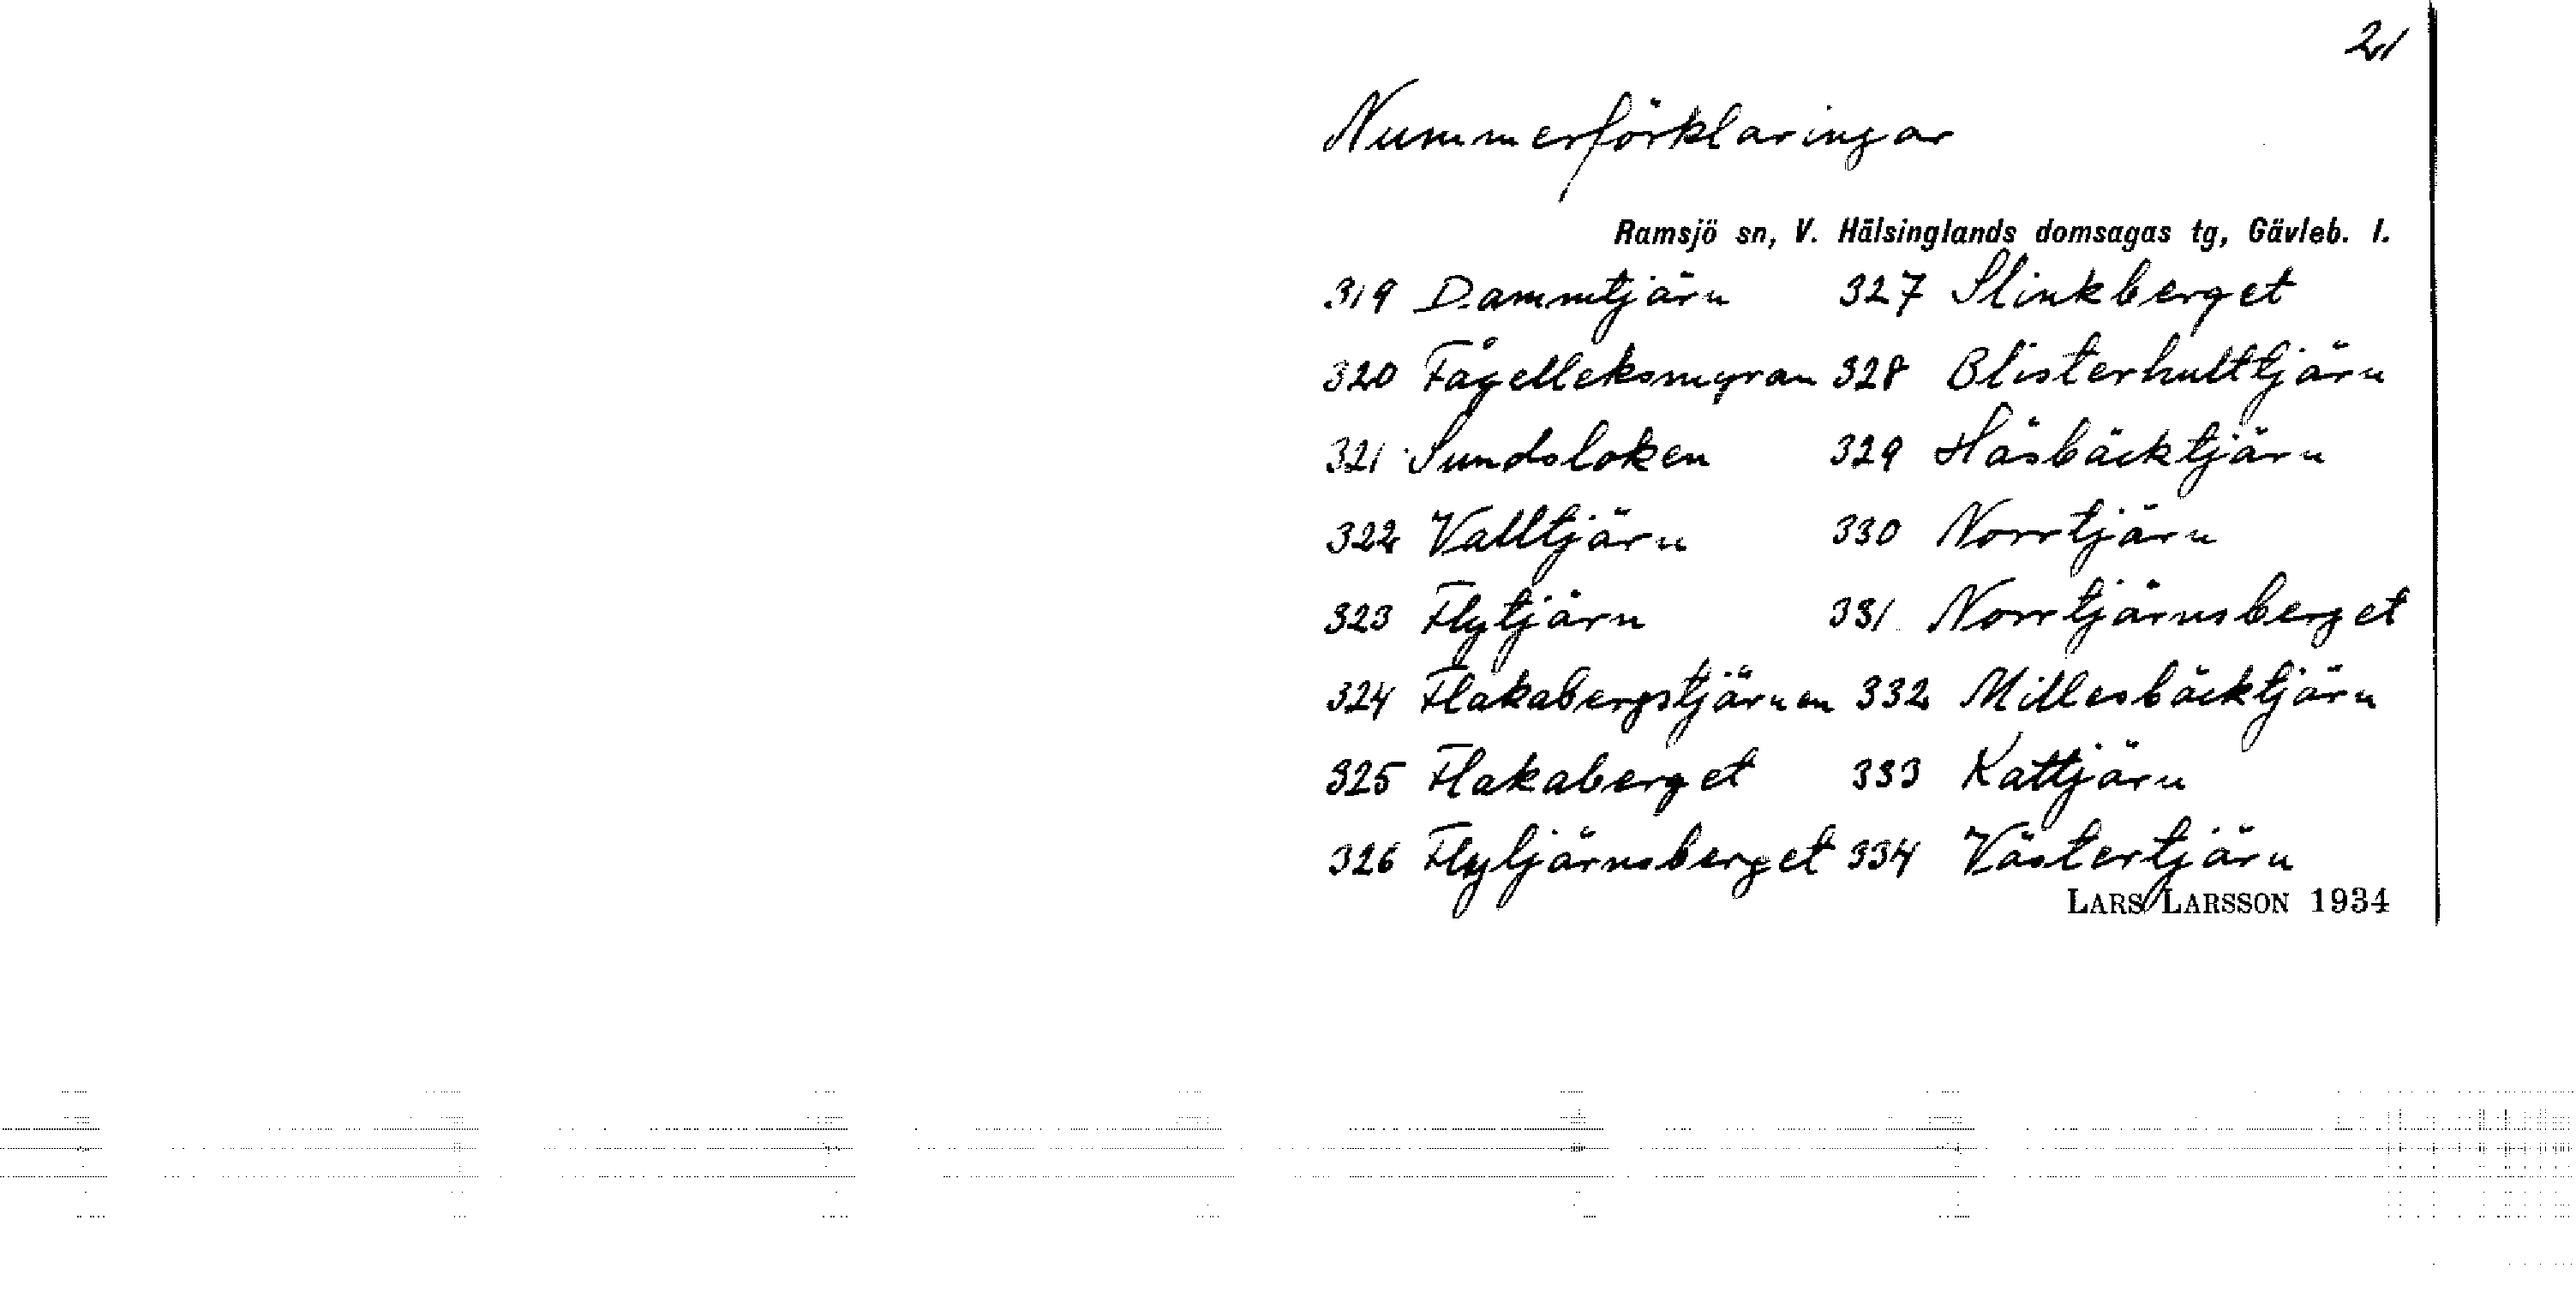 21
Nummerförklaringar
Ramsjö sn, V. Hälsinglands domsagas tg, Gävleb. l.
319 Dammtjärn 327 Slinkberget
320 Fågelleksmyran 328 Blisterhulttjärn
321 Sundsloken 329 Håsbäcktjärn
322 Valltjärn 330 Norrtjärn
323 Flytjärn 331 Norrtjärnsberget
324 Flakabergstjärnen 332 Millesbäcktjärn
325 Flakaberget 333 Kattjärn
326 Flytjärnsberget 334 Västertjärn
LARS LARSSON 1934